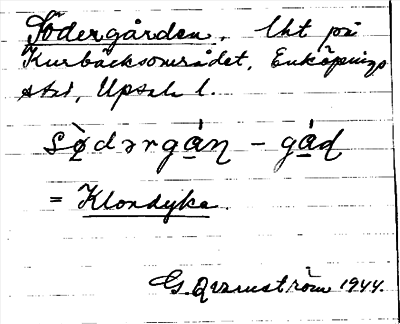 Södergården. Uht på
Kurbäcksområdet, Enköpings
std, Upsala l.
sø̀dərgá̱ɳ – gá̱ɖ
= Klondyke.
G. Qvarnström 1944.